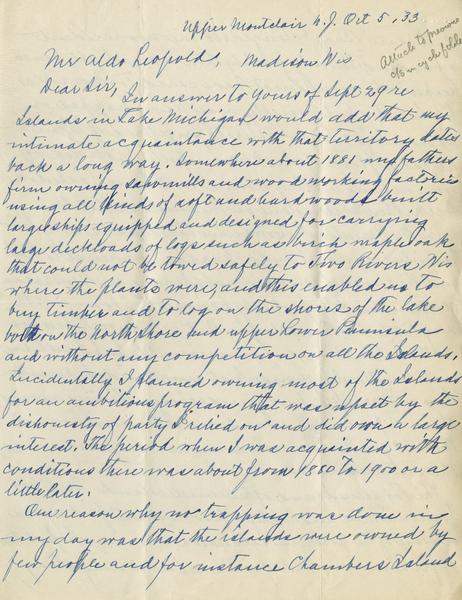 Upper Montclair N.J. Oct 5, 33
Attach to previous
c/s in cycle folder
Mr Aldo Leopold, Madison Wis
Dear Sir,
In answer to yours of Sept 29 re
Islands in Lake Michigan would add that my
intimate acquaintance with that territory dates
back a long way. Somewhere about 1881 my fathers
firm owning sawmills and wood working factories
using all kind of soft and hard woods built
large ships equipped and designed for carrying
large deckloads of logs such as birch maple oak
that could not be towed safely to Two Rivers Wis
where the plants were, and this enabled us to
buy timber and to log on the shores of the lake
both on the North Shore and upper Lower Peninsula
and without any competition on all the Islands.
Lucidentally I planned owning most of the Islands
for an ambitious program that was upset by the
dishonesty of party I relied on and did own a large
interest. The period when I was acquainted with
conditions there was about from 1880 to 1900 or a
little later.
One reason why no trapping was done in
my day was that the islands were owned by
few people and for instance Chambers Island